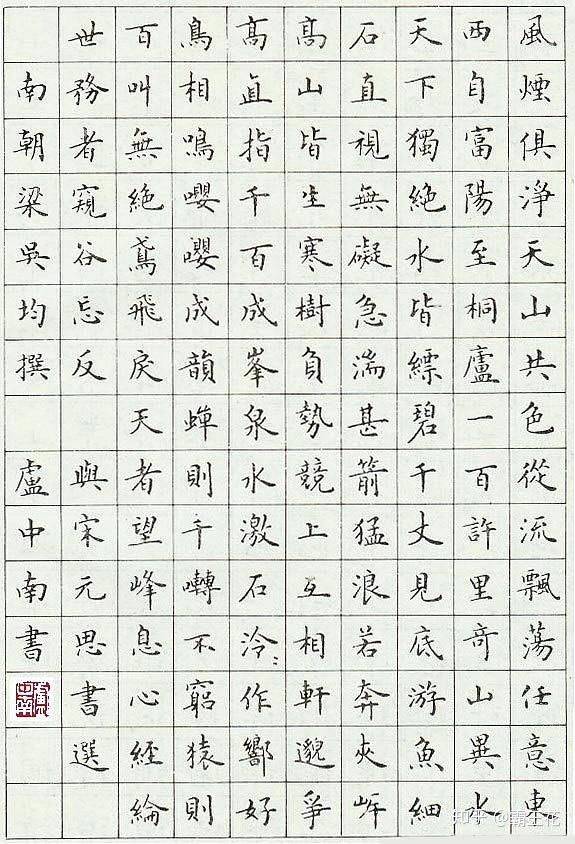 風煙俱淨天山共色從流飄蕩任意東
西自富陽至桐廬一百許里奇山異水
天下獨絕水皆縹碧千丈見底游魚細
石直視無礙急湍甚箭猛浪若奔夾岸
高山皆生寒樹負勢競上互相軒邈爭
高直指千百成峯泉水激石泠〻作響好
鳥相鳴嚶嚶成韻蟬則千囀不窮猿則
百叫無絕鳶飛戾天者望峰息心經綸
世務者窺谷忘反 與宋元思書選
南朝梁吳均撰 盧中南書
知乎 @霸王花